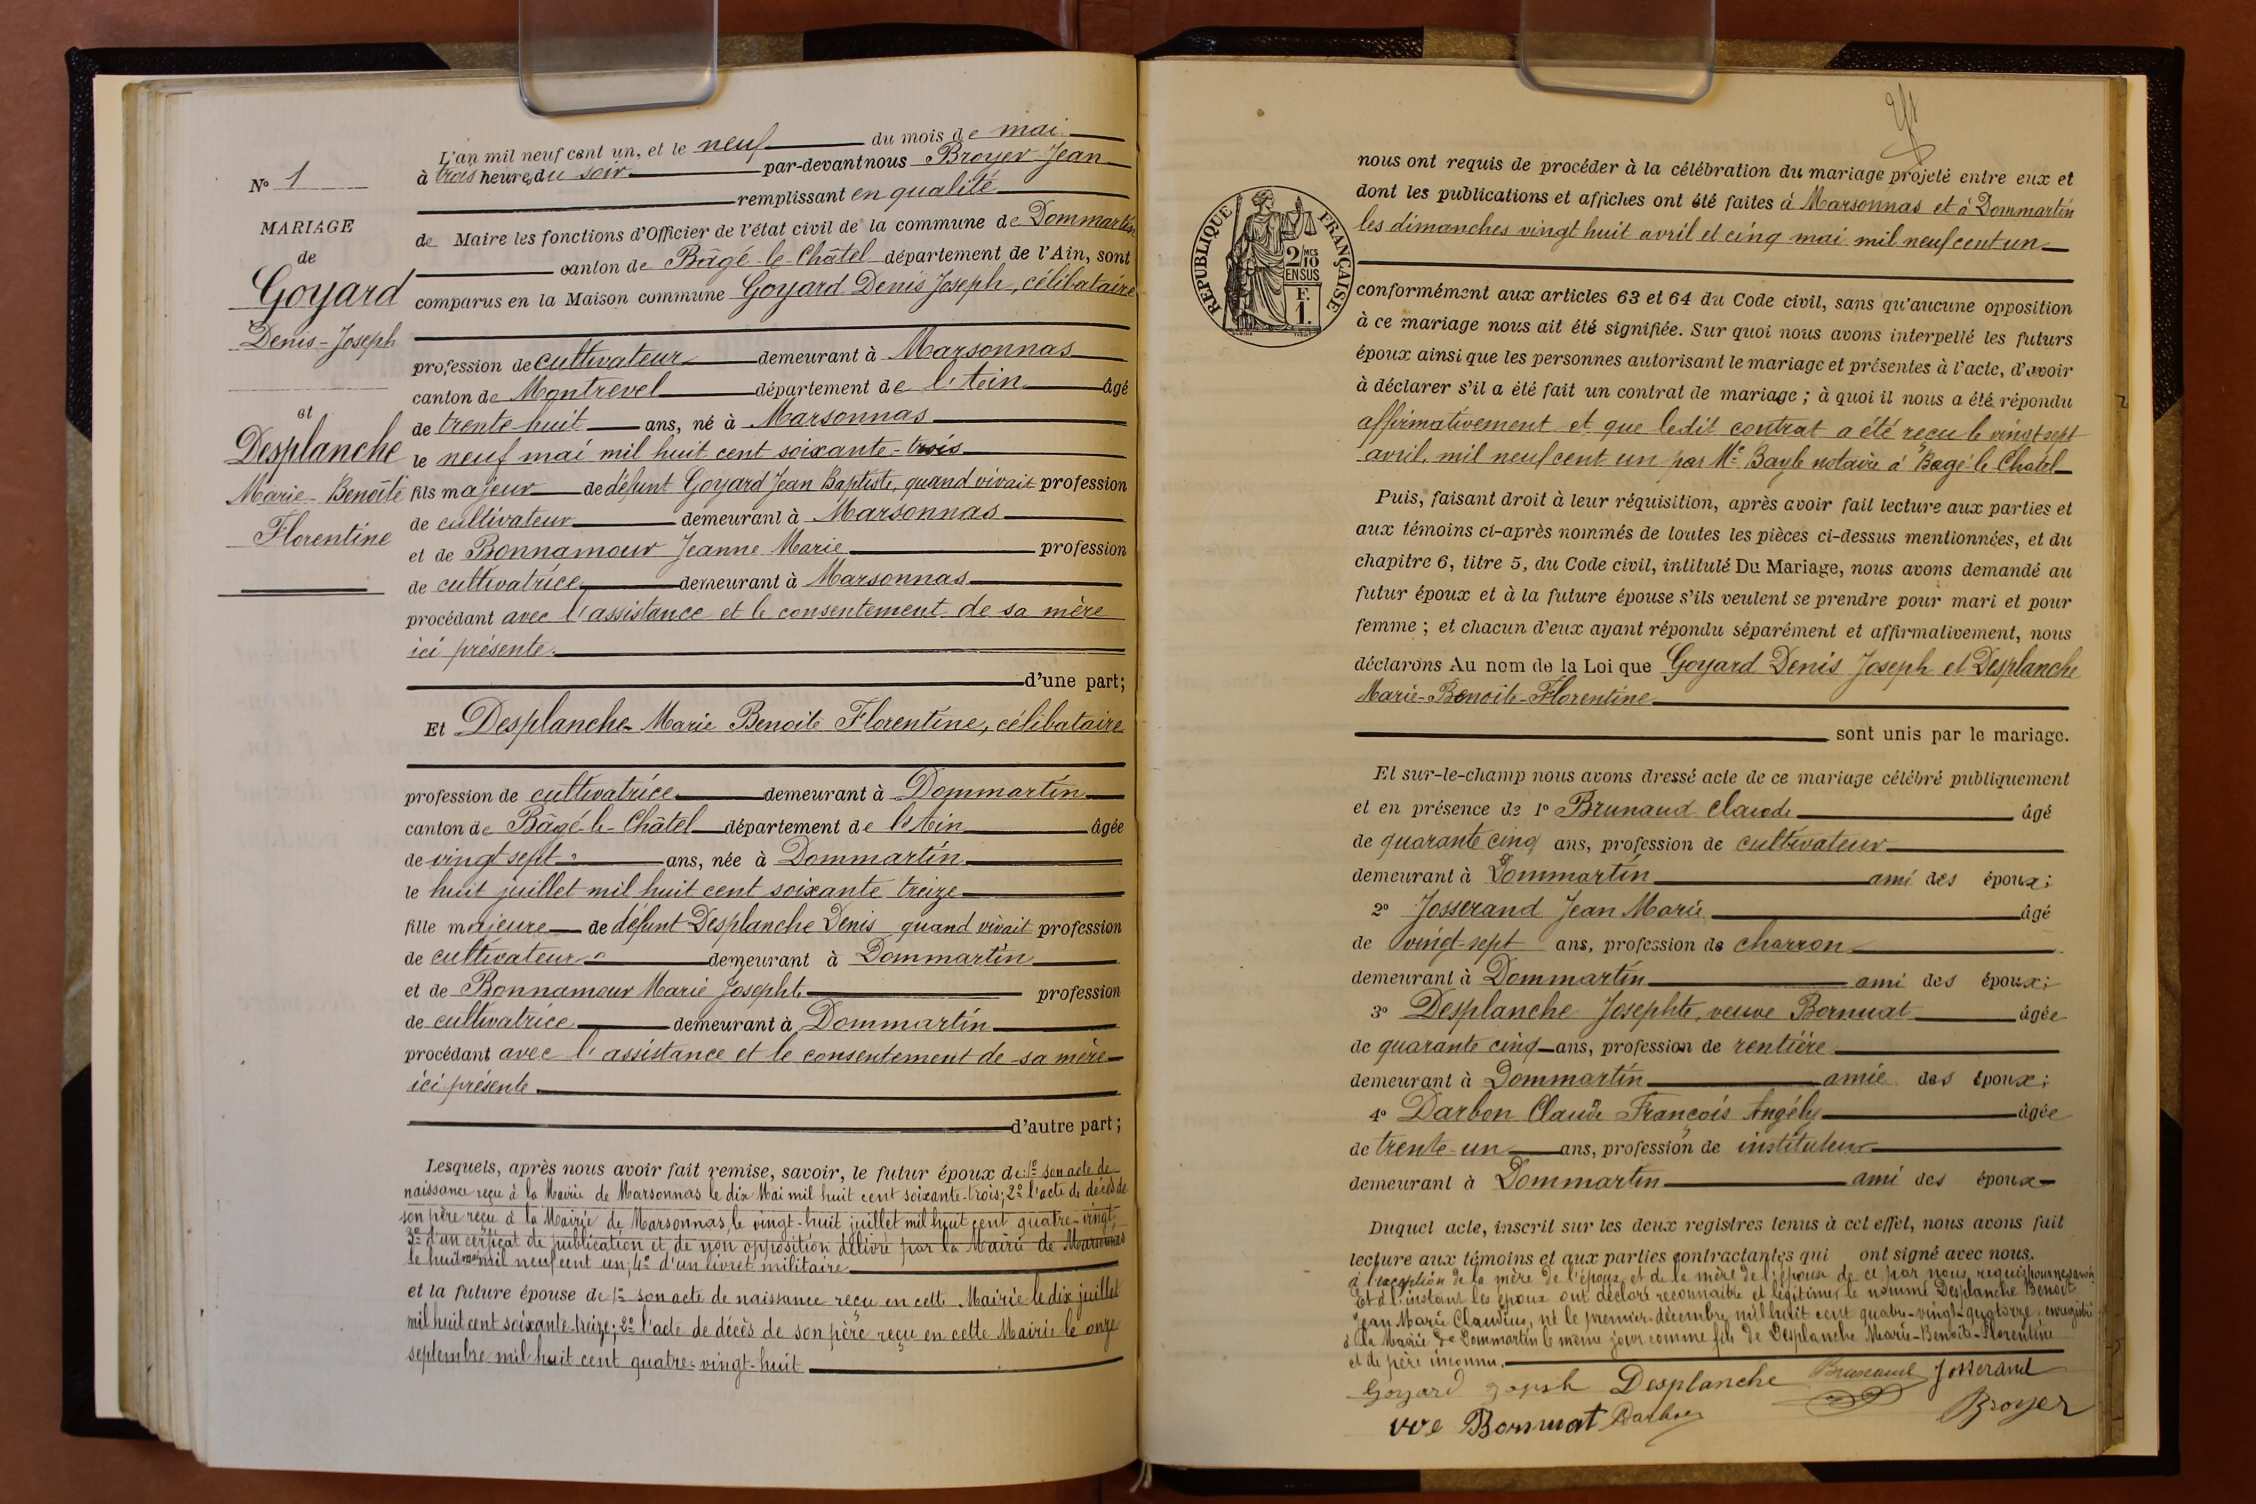 N° 1
MARIAGE
de
Goyard
Denis-Joseph
et
Desplanche
Marie-Benoîte
Florentine
L'an mil neuf cent un, et le neuf du mois de mai
à trois heures du soir par-devant nous Broyer Jean
remplissant en qualité
de Maire les fonctions d'Officier de l'état civil de la commune de Dommartin
canton de Bâgé-le-Châtel département de l'Ain, sont
comparus en la Maison commune Goyard Denis Joseph, célibataire
profession de cultivateur demeurant à Marsonnas
canton de Montrevel département de l'Ain âgé
de trente-huit ans, né à Marsonnas
le neuf mai mil huit cent soixante-trois
fils majeur de défunt Goyard Jean Baptiste, quand vivait profession
de cultivateur demeurant à Marsonnas
et de Bonnamour Jeanne Marie profession
de cultivatrice demeurant à Marsonnas
procédant avec l'assistance et le consentement de sa mère
ici présente.
d'une part;
Et Desplanche Marie Benoite Florentine, célibataire
profession de cultivatrice demeurant à Dommartin
canton de Bâgé-le-Châtel département de l'Ain âgée
de vingt sept ans, née à Dommartin
le huit juillet mil huit cent soixante treize
fille majeure de défunt Desplanche Denis quand vivait profession
de cultivateur demeurant à Dommartin
et de Bonnamour Marie Josephte profession
de cultivatrice demeurant à Dommartin
procédant avec l'assistance et le consentement de sa mère
ici présente
d'autre part;
Lesquels, après nous avoir fait remise, savoir, le futur époux de: 1° son acte de
naissance reçu à la Mairie de Marsonnas le dix Mai mil huit cent soixante-trois; 2° l'acte de décès de
son père reçu à la Mairie de Marsonnas, le vingt-huit juillet mil huit cent quatre-vingt,
3° d'un cerficat de publication et de non opposition délivré par la Mairie de Marsonnas
le huit mai mil neuf cent un; 4° d'un livret militaire
et la future épouse de 1° son acte de naissance reçu en cette Mairie le dix juillet
mil huit cent soixante-treize; 2° l'acte de décès de son père reçu en cette Mairie le onze
septembre mil huit cent quatre-vingt-huit
RÉPUBLIQUE FRANÇAISE
2/10 MES
EN SUS
F.
1.
nous ont requis de procéder à la célébration du mariage projeté entre eux et
dont les publications et affiches ont été faites à Marsonnas et à Dommartin
les dimanches vingt huit avril et cinq mai mil neuf cent un
conformément aux articles 63 et 64 du Code civil, sans qu'aucune opposition
à ce mariage nous ait été signifiée. Sur quoi nous avons interpellé les futurs
époux ainsi que les personnes autorisant le mariage et présentes à l'acte, d'avoir
à déclarer s'il a été fait un contrat de mariage; à quoi il nous a été répondu
affirmativement et que ledit contrat a été reçu le vingt-sept
avril, mil neuf cent un par Me Bayle notaire à Bagé-le-Chatel
Puis, faisant droit à leur réquisition, après avoir fait lecture aux parties et
aux témoins ci-après nommés de toutes les pièces ci-dessus mentionnées, et du
chapitre 6, titre 5, du Code civil, intitulé Du Mariage, nous avons demandé au
futur époux et à la future épouse s'ils veulent se prendre pour mari et pour
femme; et chacun d'eux ayant répondu séparément et affirmativement, nous
déclarons Au nom de la Loi que Goyard Denis Joseph et Desplanche
Marie-Benoite-Florentine
sont unis par le mariage.
Et sur-le-champ nous avons dressé acte de ce mariage célébré publiquement
et en présence de 1° Brunaud Claude âgé
de quarante cinq ans, profession de cultivateur
demeurant à Dommartin ami des époux;
2° Josserand Jean Marie âgé
de vingt-sept ans, profession de charron
demeurant à Dommartin ami des époux;
3° Desplanche Josephte, veuve Bornuat âgée
de quarante cinq ans, profession de rentière
demeurant à Dommartin amie des époux;
4° Darbon Claude François Angély âgée
de trente-un ans, profession de instituteur
demeurant à Dommartin ami des époux
Duquel acte, inscrit sur les deux registres tenus à cet effet, nous avons fait
lecture aux témoins et aux parties contractantes qui ont signé avec nous.
à l'exception de la mère de l'époux et de la mère de l'épouse de ce par nous requis pour ne savoir
Et à l'instant les époux ont déclaré reconnaître et légitimer le nommé Desplanche Benoît
Jean Marie Claudius, né le premier décembre mil huit cent quatre-vingt-quatorze, enregistré
à la Mairie de Dommartin le même jour comme fils de Desplanche Marie-Benoîte-Florentine
et de père inconnu.
Goyard Joseph Desplanche Brunaud Josserand
vve Bornuat Darbon Broyer